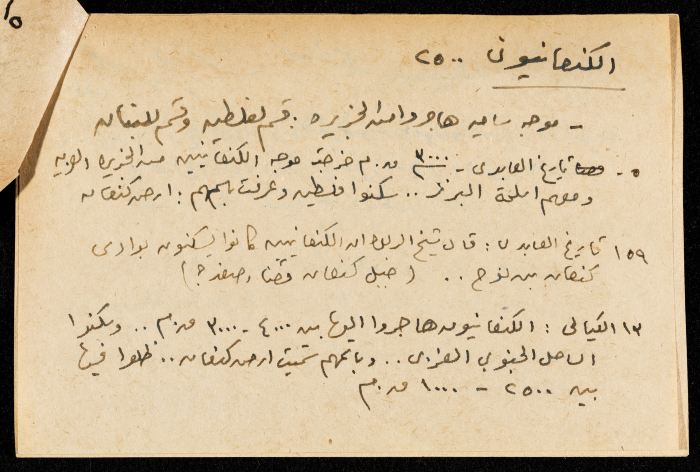 الكنعانيون ٢٥٠٠
- موجه ساميه هاجروا من الجزيره : قسم لفلسطين وقسم للبنان
٥ - تاريخ العابدي - ٣٠٠٠ ق.م خرجت موجه الكنعانيين من الجزيره العربيه
ومعهم اسلحة البرنز .. سكنوا فلسطين وعرفت باسمهم : ارض كنعان
١٥٩ تاريخ العابدي : قال شيخ الربوه ان الكنعانيين كانوا يسكنون بوادي
كنعان بن نوح .. ( جبل كنعان قضاء صفد ؟ )
١٣ الكيالي : الكنعانيون هاجروا اليها بين ٤٠٠٠ - ٣٠٠٠ ق.م .. وسكنوا
الساحل الجنوبي الغربي .. وباسمهم سميت ارض كنعان .. ظلوا فيها
بين ٢٥٠٠ - ١٠٠٠ ق.م